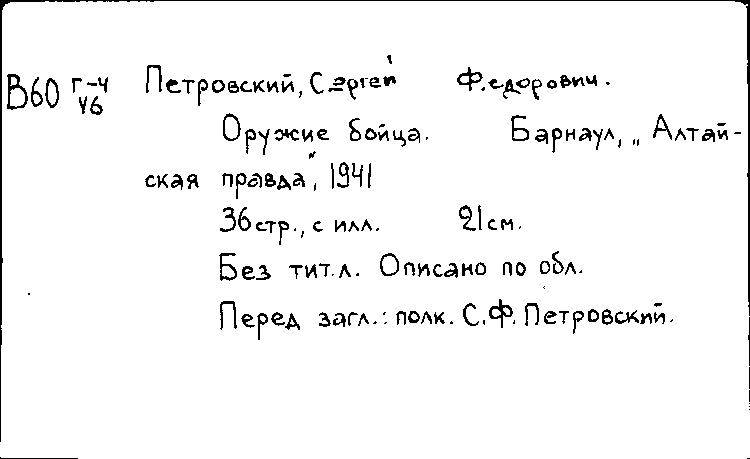 В60 Г-4 Петровский, Сергей Федорович.
46
Оружие бойца. Барнаул, „Алтай-
ская правда", 1941
36 стр., с илл. 21 см.
Без тит.л. Описано по обл.
Перед загл.: полк. С.Ф. Петровский.